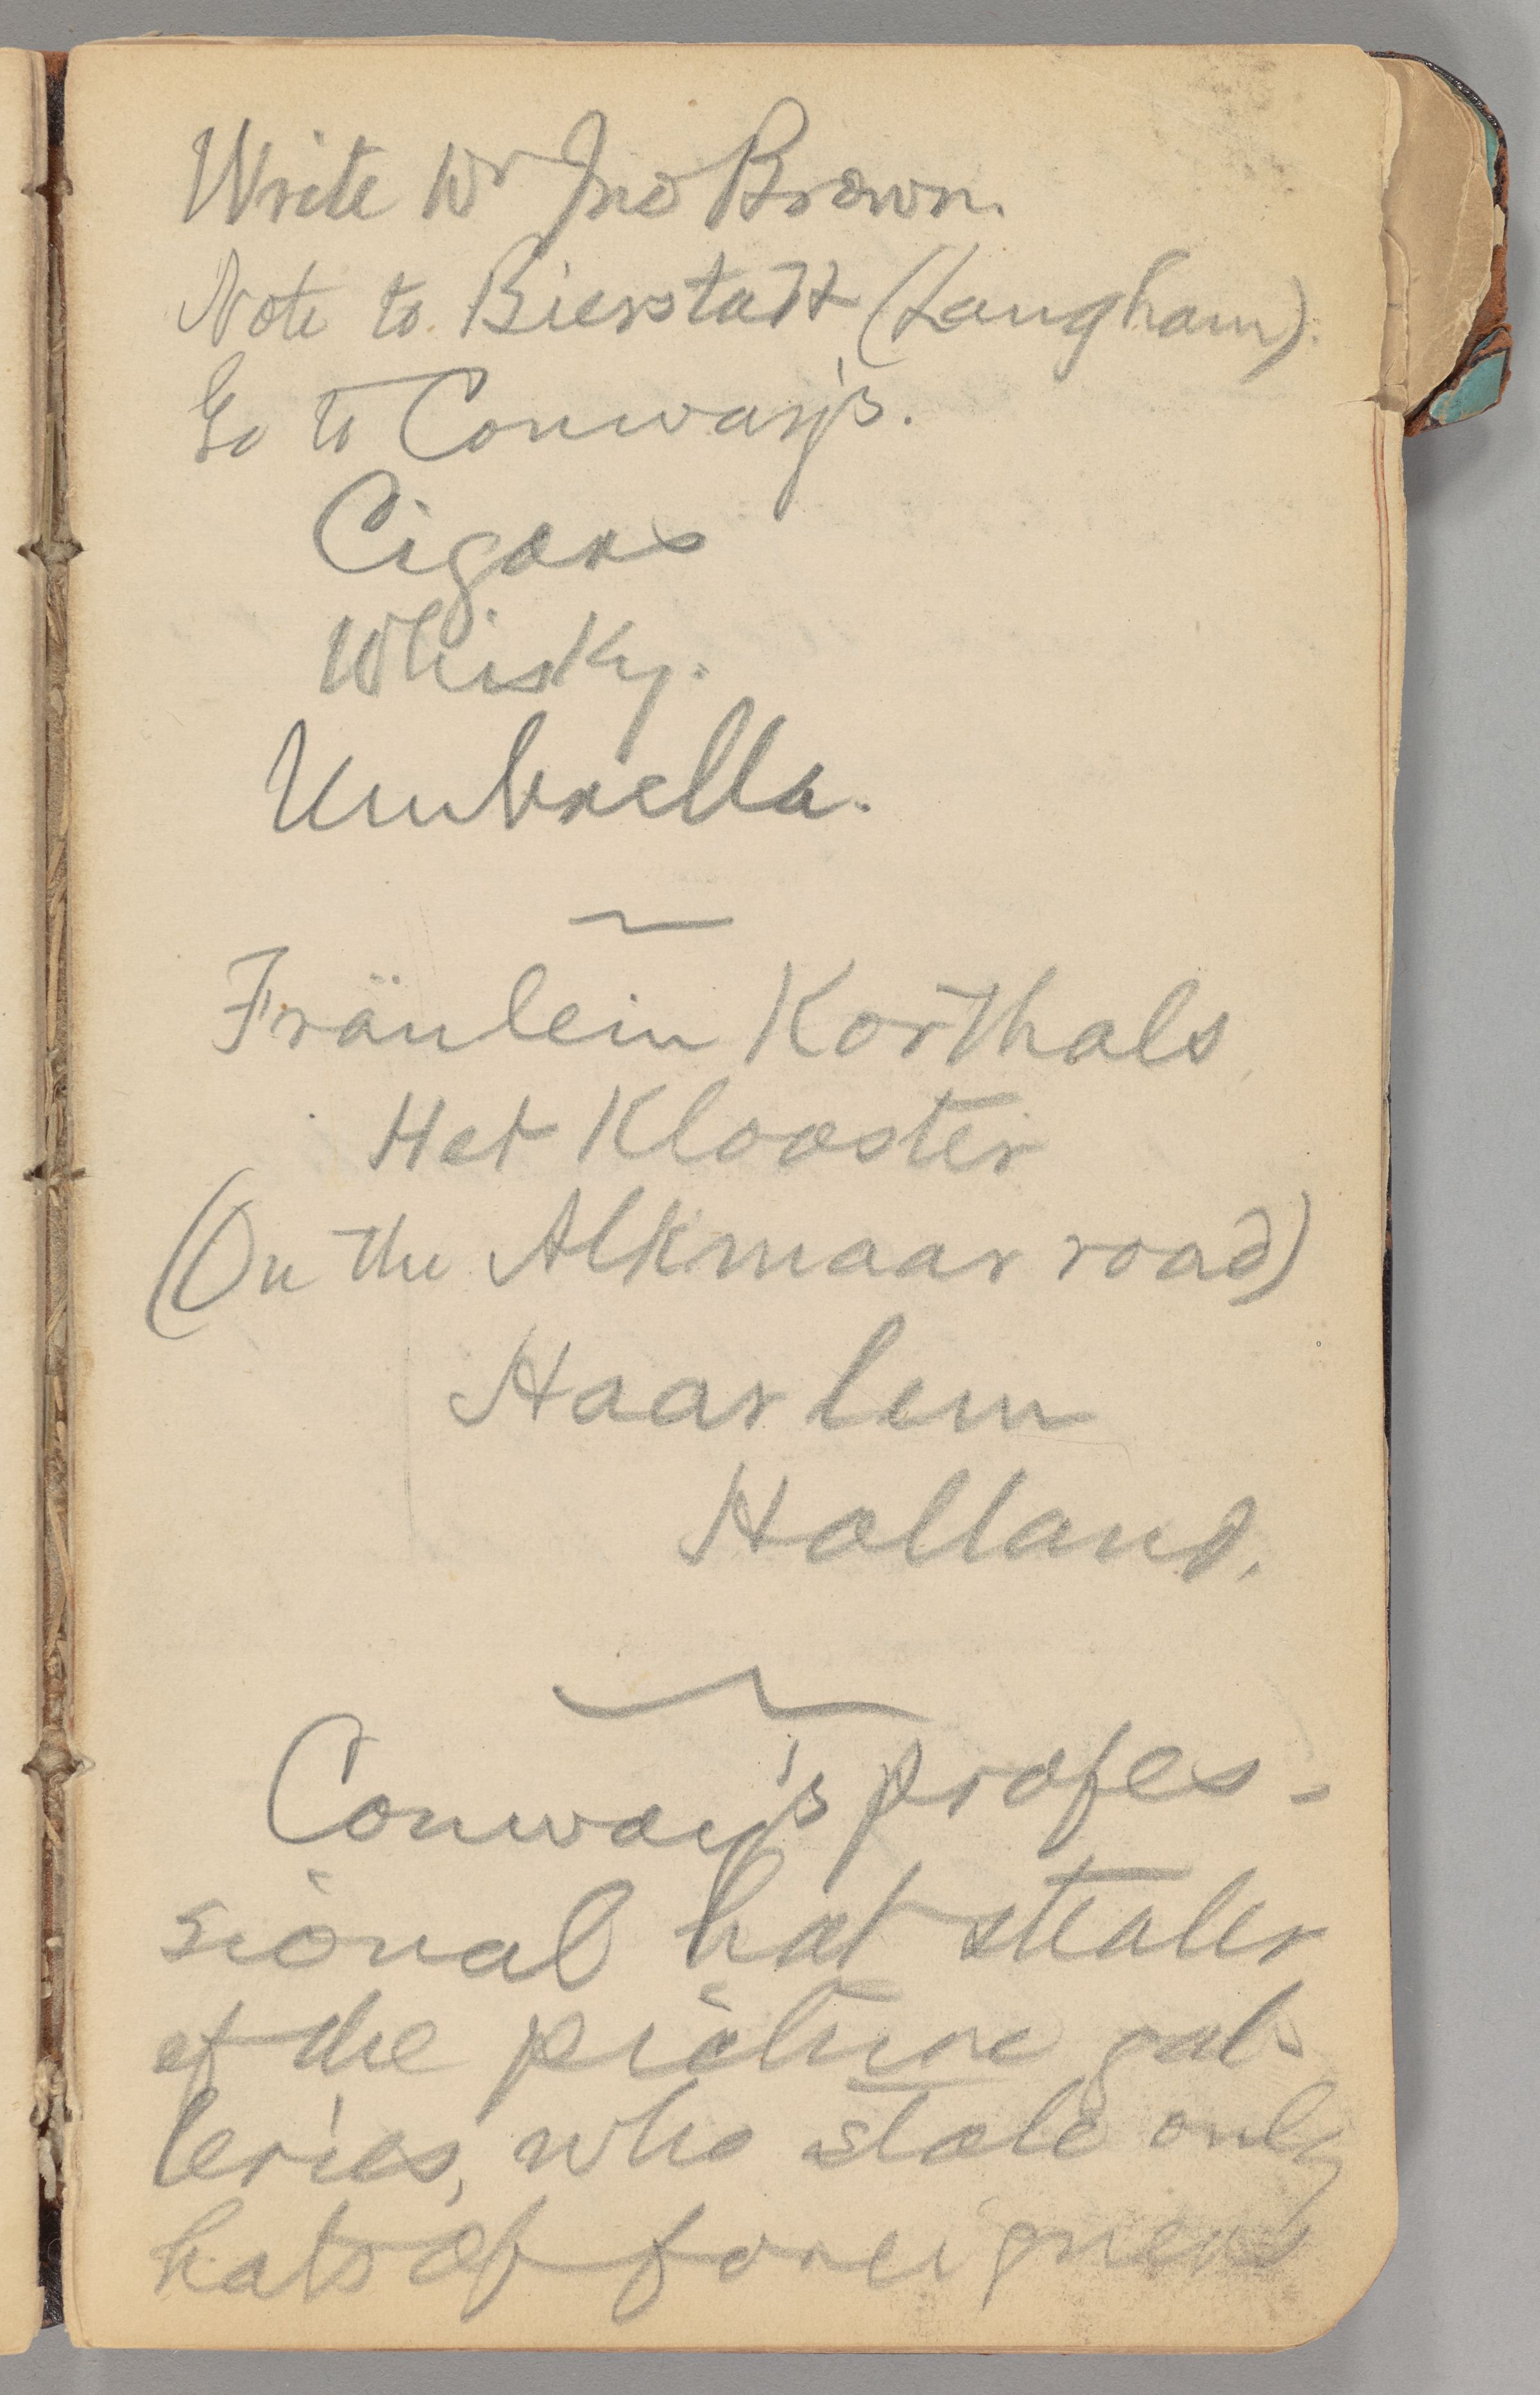 Write Dr Jno Brown.
Note to Bierstadt (Langham).
Go to Conway's.
Cigars
Whisky.
Umbrella.
Fräulein Korthals
Het Klooster
(On the Alkmaar road)
Haarlem
Holland.
Conway's profes-
sional hat stealer
of the picture gal-
leries, who stole only
hats of foreigners